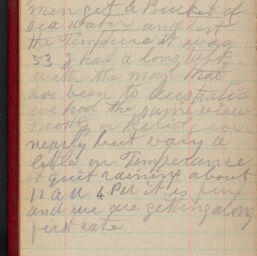 men get a Bucket of
sea water and test
the Tempture it was
53 I had a long talk
with the man that
has been to Australia
we had the same view
mostly on
nearly but vary a
little on Temperance
it quit raining about
11 A M 4 PM it is fine
and we are getting along
first rate